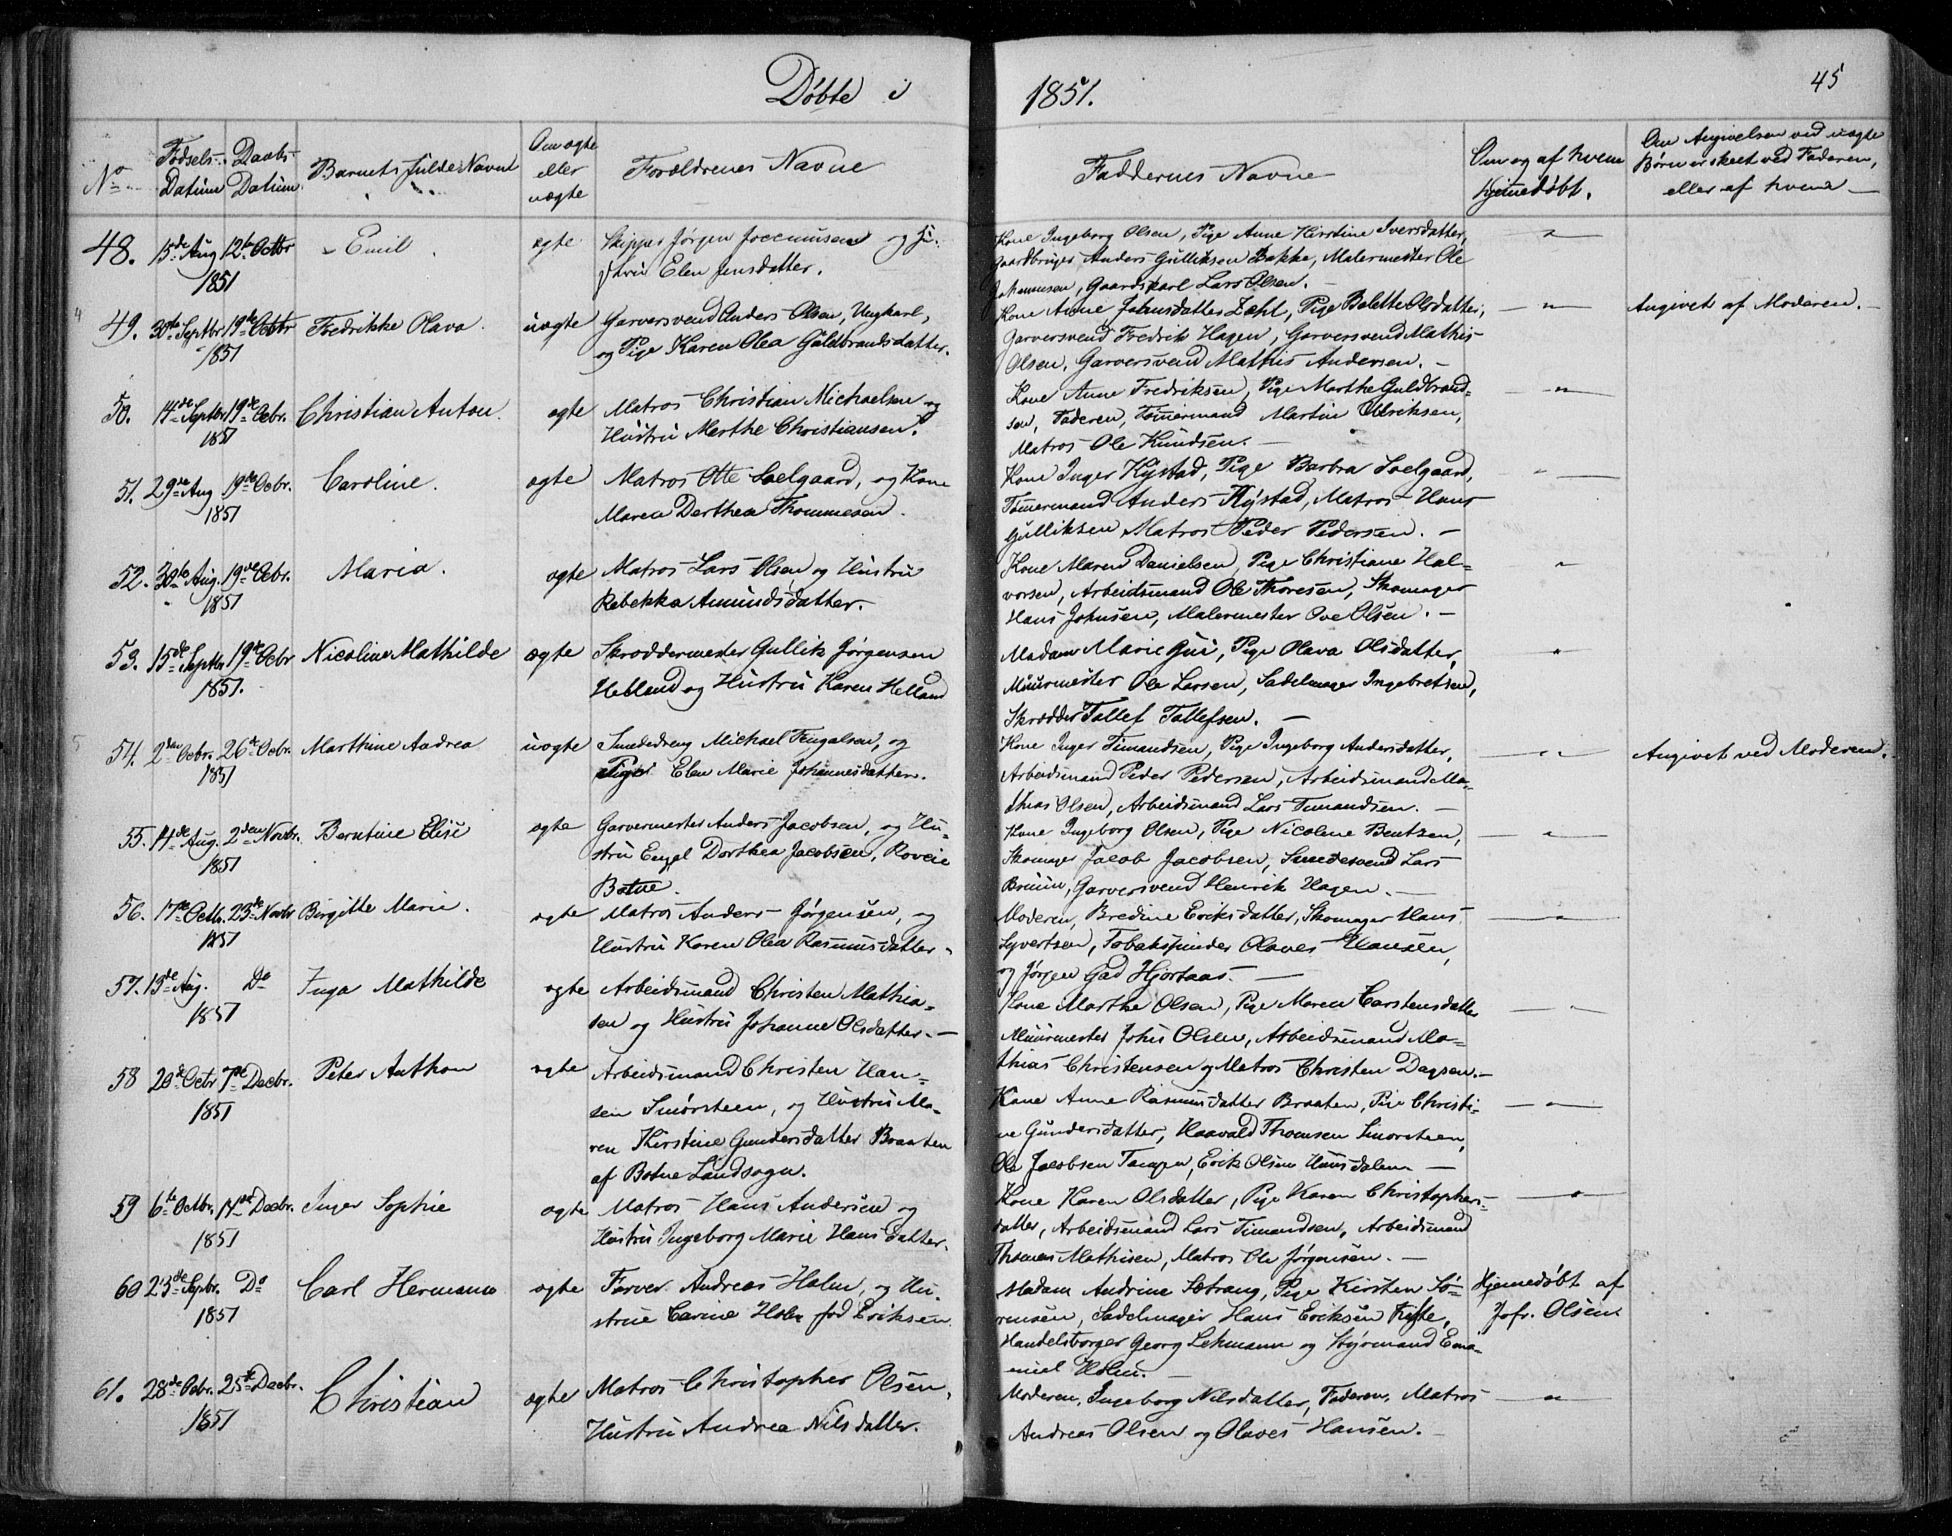 Døbte i 1851.
45
No
Fødsels-Datum
Daabs-Datum
Barnets fulde Navn
Om ægte eller uægte
Forældrenes Navne
Faddernes Navne
Om og af hvem hjemmedøbt.
Om Angivelsen ved uægte Børn er skeet ved Faderen, eller af hvem
48. 15de Aug 1851 12te Octbr Emil. ægte Skipper Jørgen og Hustru Elen Jensdatter.
Kone Ingeborg Olsen, Pige Anne Kirstine Iversdatter,
Gaardbruger Anders Gulliksen Bakke, Malermester Ole
Johannesen, Gaardskarl Lars Olsen. -
49. 30te Septbr 1851 19de Octbr Fredrikke Olava. uægte Garversvend Anders Olsen, Ungkarl,
og Pige Karen Olea Guldbrandsdatter.
Kone Anne Johnsdatter Dahl, Pige Bolette Olsdatter,
Garversvend Fredrik Hagen, Garversvend Mathis
Olsen, Garversvend Mathis Andersen. -
Angivet af Moderen. -
50. 14de Septbr 1851 19de Ocbr. Christian Anton. ægte Matros Christian Michaelsen og
Hustru Marthe Christiansen.
Kone Anne Fredriksen, Pige Marthe Guldbrand-
sen, Faderen, Tømermand Martin Ulriksen,
Matros Ole Knudsen. -
51. 29de Aug 1851 19de Ocbr. Caroline. ægte Matros Otte Soelgaard, og Kone
Maren Dorthea Thommesen.
Kone Inger Kystad, Pige Barbra Soelgaard,
Tømermand Anders Kystad, Matros Hans
Gulliksen Matros Peder Pedersen. -
52. 30te Aug. 1851 19de Ocbr. Maria. ægte Matros Lars Olsen og Hustru
Rebekka Amundsdatter.
Kone Maren Danielsen, Pige Christiane Hal-
vorsen, Arbeidsmand Ole Thoresen, Skomager
Hans Johnsen, Malermester Ove Olsen. -
53. 15de Septbr 1851. 19de Ocbr Nicoline Mathilde ægte Skræddermester Gullik Jørgensen
Helland og Hustru Karen Helland
Madam Marie Gui, Pige Olava Olsdatter,
Muurmester Ole Larsen, Sadelmager Ingebretsen,
Skrædder Tallef Tallefsen. -
54. 2den Ocbr. 1851 26de Ocbr. Marthine Andrea uægte Smededreng Michael Fingalsen, og
Pige Elen Marie Johannesdatter.
Kone Inger Timandsen, Pige Ingeborg Andersdatter,
Arbeidsmand Peder Pedersen, Arbeidsmand Ma-
thias Olsen, Arbeidsmand Lars Timandsen. -
Angivet ved Moderen.
55. 14de Aug. 1851 2den Novbr. Berntine Elise ægte Garvermester Anders Jacobsen, og Hu-
stru Engel Dorthea Jacobsen, Roveie
Botne.
Kone Ingeborg Olsen, Pige Nicolene Bentzen,
Skomager Jacob Jacobsen, Smedesvend Lars
Bruun, Garversvend Henrik Hagen. -
56. 17de Octbr. 1851 23de Novbr Birgitte Marie. ægte Matros Anders Jørgensen, og
Hustru Karen Olea Rasmusdatter.
Moderen, Bredine Eriksdatter, Skomager Hans
Syvertsen, Tobakspinder Olaves Hansen,
og Jørgen Gad Hjortaas. -
57. 13de Aug. 1851 Do Inga Mathilde ægte Arbeidsmand Christen Mathia-
sen og Hustru Johanne Olsdatter. -
Kone Marthe Olsen, Pige Maren Carstensdatter
Muurmester Johs Olsen, Arbeidsmand Ma-
thias Christensen og Matros Christen Dagsen. -
58 20de Octbr 1851 7de Decbr. Peter Anthon ægte Arbeidsmand Christen Han-
sen Smørsteen, og Hustru Ma-
ren Kirstine Gundersdatter Braaten
af Botne Landsogn.
Kone Anne Rasmusdatter Braaten, Pige Christi-
ne Gundersdatter, Haavald Thomsen Smorsteen,
Ole Jacobsen Tangen, Erik Olsen Hansdalen -
59 6te Octbr. 1851 14de Decbr. Inger Sophie ægte Matros Hans Andersen og
Hustru Ingeborg Marie Hansdatter.
Kone Karen Olsdatter, Pige Karen Christophers-
datter, Arbeidsmand Lars Timandsen, Arbeidsmand
Thomas Mathisen, Matros Ole Jørgensen. -
60 23de Sepbr. 1851 Do Carl Hermann ægte Farver Andreas Holm, og Hu-
strue Carine Holm fød Eriksen.
Madam Andrine Sætrang, Pige Kirsten Sö-
rensen, Sadelmager Hans Eriksen Kiste,
Handelsborger Georg Lehmann og Styrmand Ema-
niel Holm. -
Hjemedøbt af
Jofr. Olsen.
61. 28de Ocbr. 1851 25de Decbr. Christian ægte Matros Christopher Olsen,
Hustru Andrea Nilsdatter.
Moderen, Ingeborg Nilsdatter, Faderen, Matros
Andreas Olsen og Olaves Hansen. -